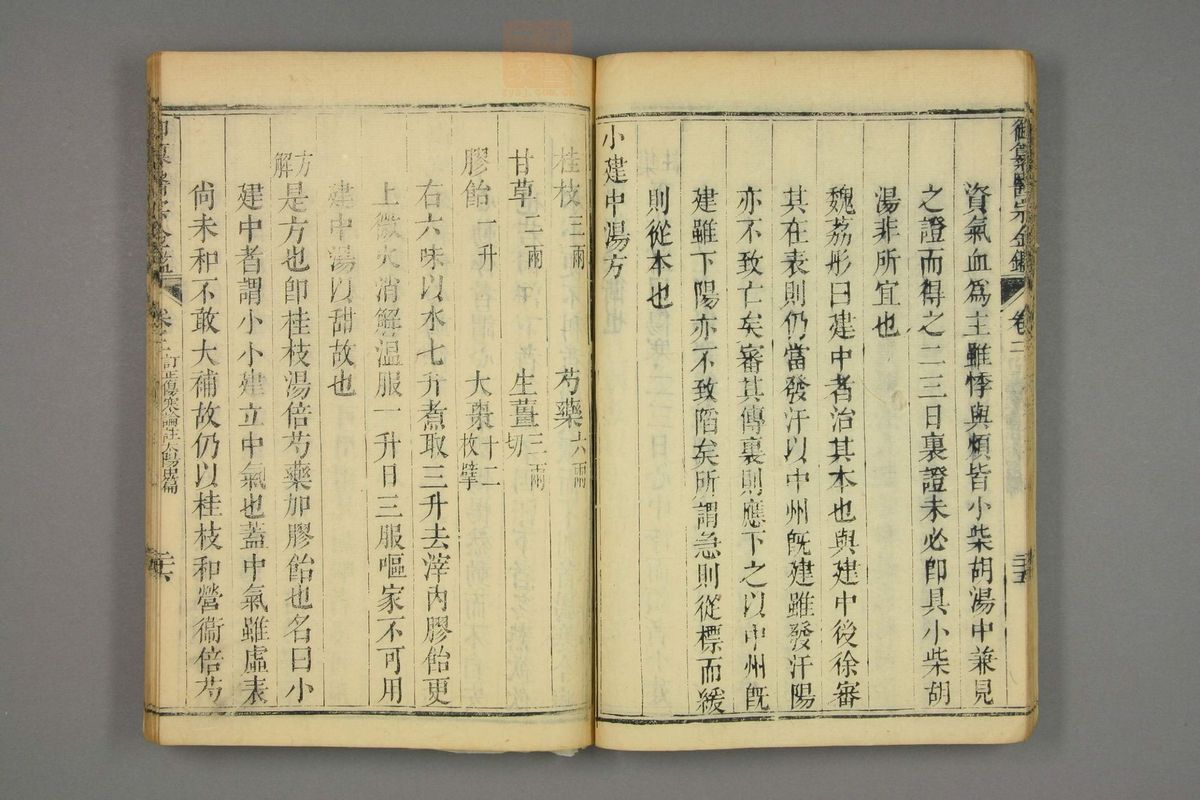 御纂醫宗金鑑 卷二 二十五
資氣血為主雖悸與煩皆小柴胡湯中兼見
之證而得之二三日裏證未必卽具小柴胡
湯非所宜也
魏荔彤曰建中者治其本也與建中後徐審
其在表則仍當發汗以中州旣建雖發汗陽
亦不致亡矣審其傳裏則應下之以中州旣
建雖下陽亦不致陷矣所謂急則從標而緩
則從本也
小建中湯方
桂枝三兩 芍藥六兩
甘草二兩 生薑三兩切
膠飴一升 大棗十二枚擘
右六味以水七升煮取三升去滓內膠飴更
上微火消解溫服一升日三服嘔家不可用
建中湯以甜故也
方解 是方也卽桂枝湯倍芍藥加膠飴也名曰小
建中者謂小小建立中氣也蓋中氣雖虛表
尙未和不敢大補故仍以桂枝和營衞倍芍
醫宗金鑑 卷二 訂正傷寒論註太陽中篇 二十六